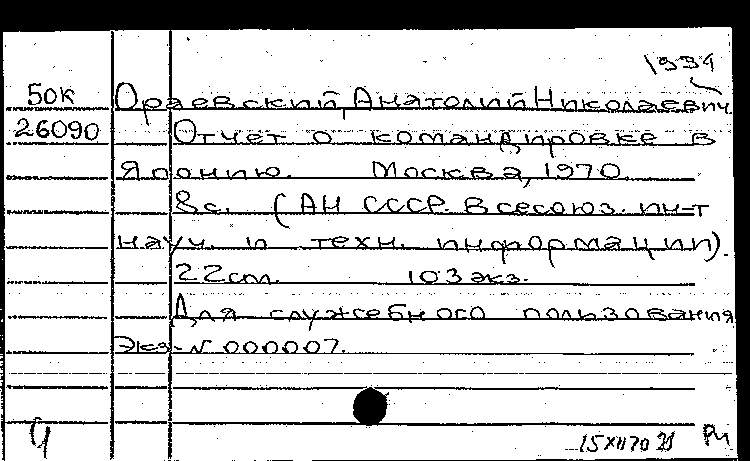 1934
50к Ораевский, Анатолий Николаевич
26090 Отчет о командировке в
Японию. Москва, 1970.
8с. (АН СССР. Всесоюз. ин-т
науч. и техн. информации).
22 cm. 103 экз.
Для служебного пользования
Экз. N 000007.
15 XII 70